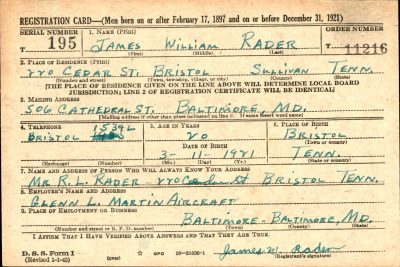 REGISTRATION CARD—(Men born on or after February 17, 1897 and on or before December 31, 1921)
SERIAL NUMBER 1. NAME (Print) ORDER NUMBER
T 195 JAMES WILLIAM RADER T 11216
(First) (Middle) (Last)
2. PLACE OF RESIDENCE (Print)
220 CEDAR ST. BRISTOL SULLIVAN TENN.
(Number and street) (Town, township, village, or city) (County) (State)
[THE PLACE OF RESIDENCE GIVEN ON THE LINE ABOVE WILL DETERMINE LOCAL BOARD
JURISDICTION; LINE 2 OF REGISTRATION CERTIFICATE WILL BE IDENTICAL]
3. MAILING ADDRESS
506 CATHEDRAL ST. BALTIMORE, MD.
[Mailing address if other than place indicated on line 2. If same insert word same]
4. TELEPHONE 5. AGE IN YEARS 6. PLACE OF BIRTH
1539L
BRISTOL 20 BRISTOL
DATE OF BIRTH (Town or county)
3-11-1921 TENN.
(Exchange) (Number) (Mo.) (Day) (Yr.) (State or country)
7. NAME AND ADDRESS OF PERSON WHO WILL ALWAYS KNOW YOUR ADDRESS
MR. R. L. RADER 220 St BRISTOL TENN.
8. EMPLOYER'S NAME AND ADDRESS
GLENN L. MARTIN AIRCRAFT
9. PLACE OF EMPLOYMENT OR BUSINESS
BALTIMORE - BALTIMORE, MD.
(Number and street or R. F. D. number) (Town) (County) (State)
I AFFIRM THAT I HAVE VERIFIED ABOVE ANSWERS AND THAT THEY ARE TRUE.
James W. Rader
D. S. S. Form 1 (over) GPO (Registrant's signature)
(Revised 1-3-42)